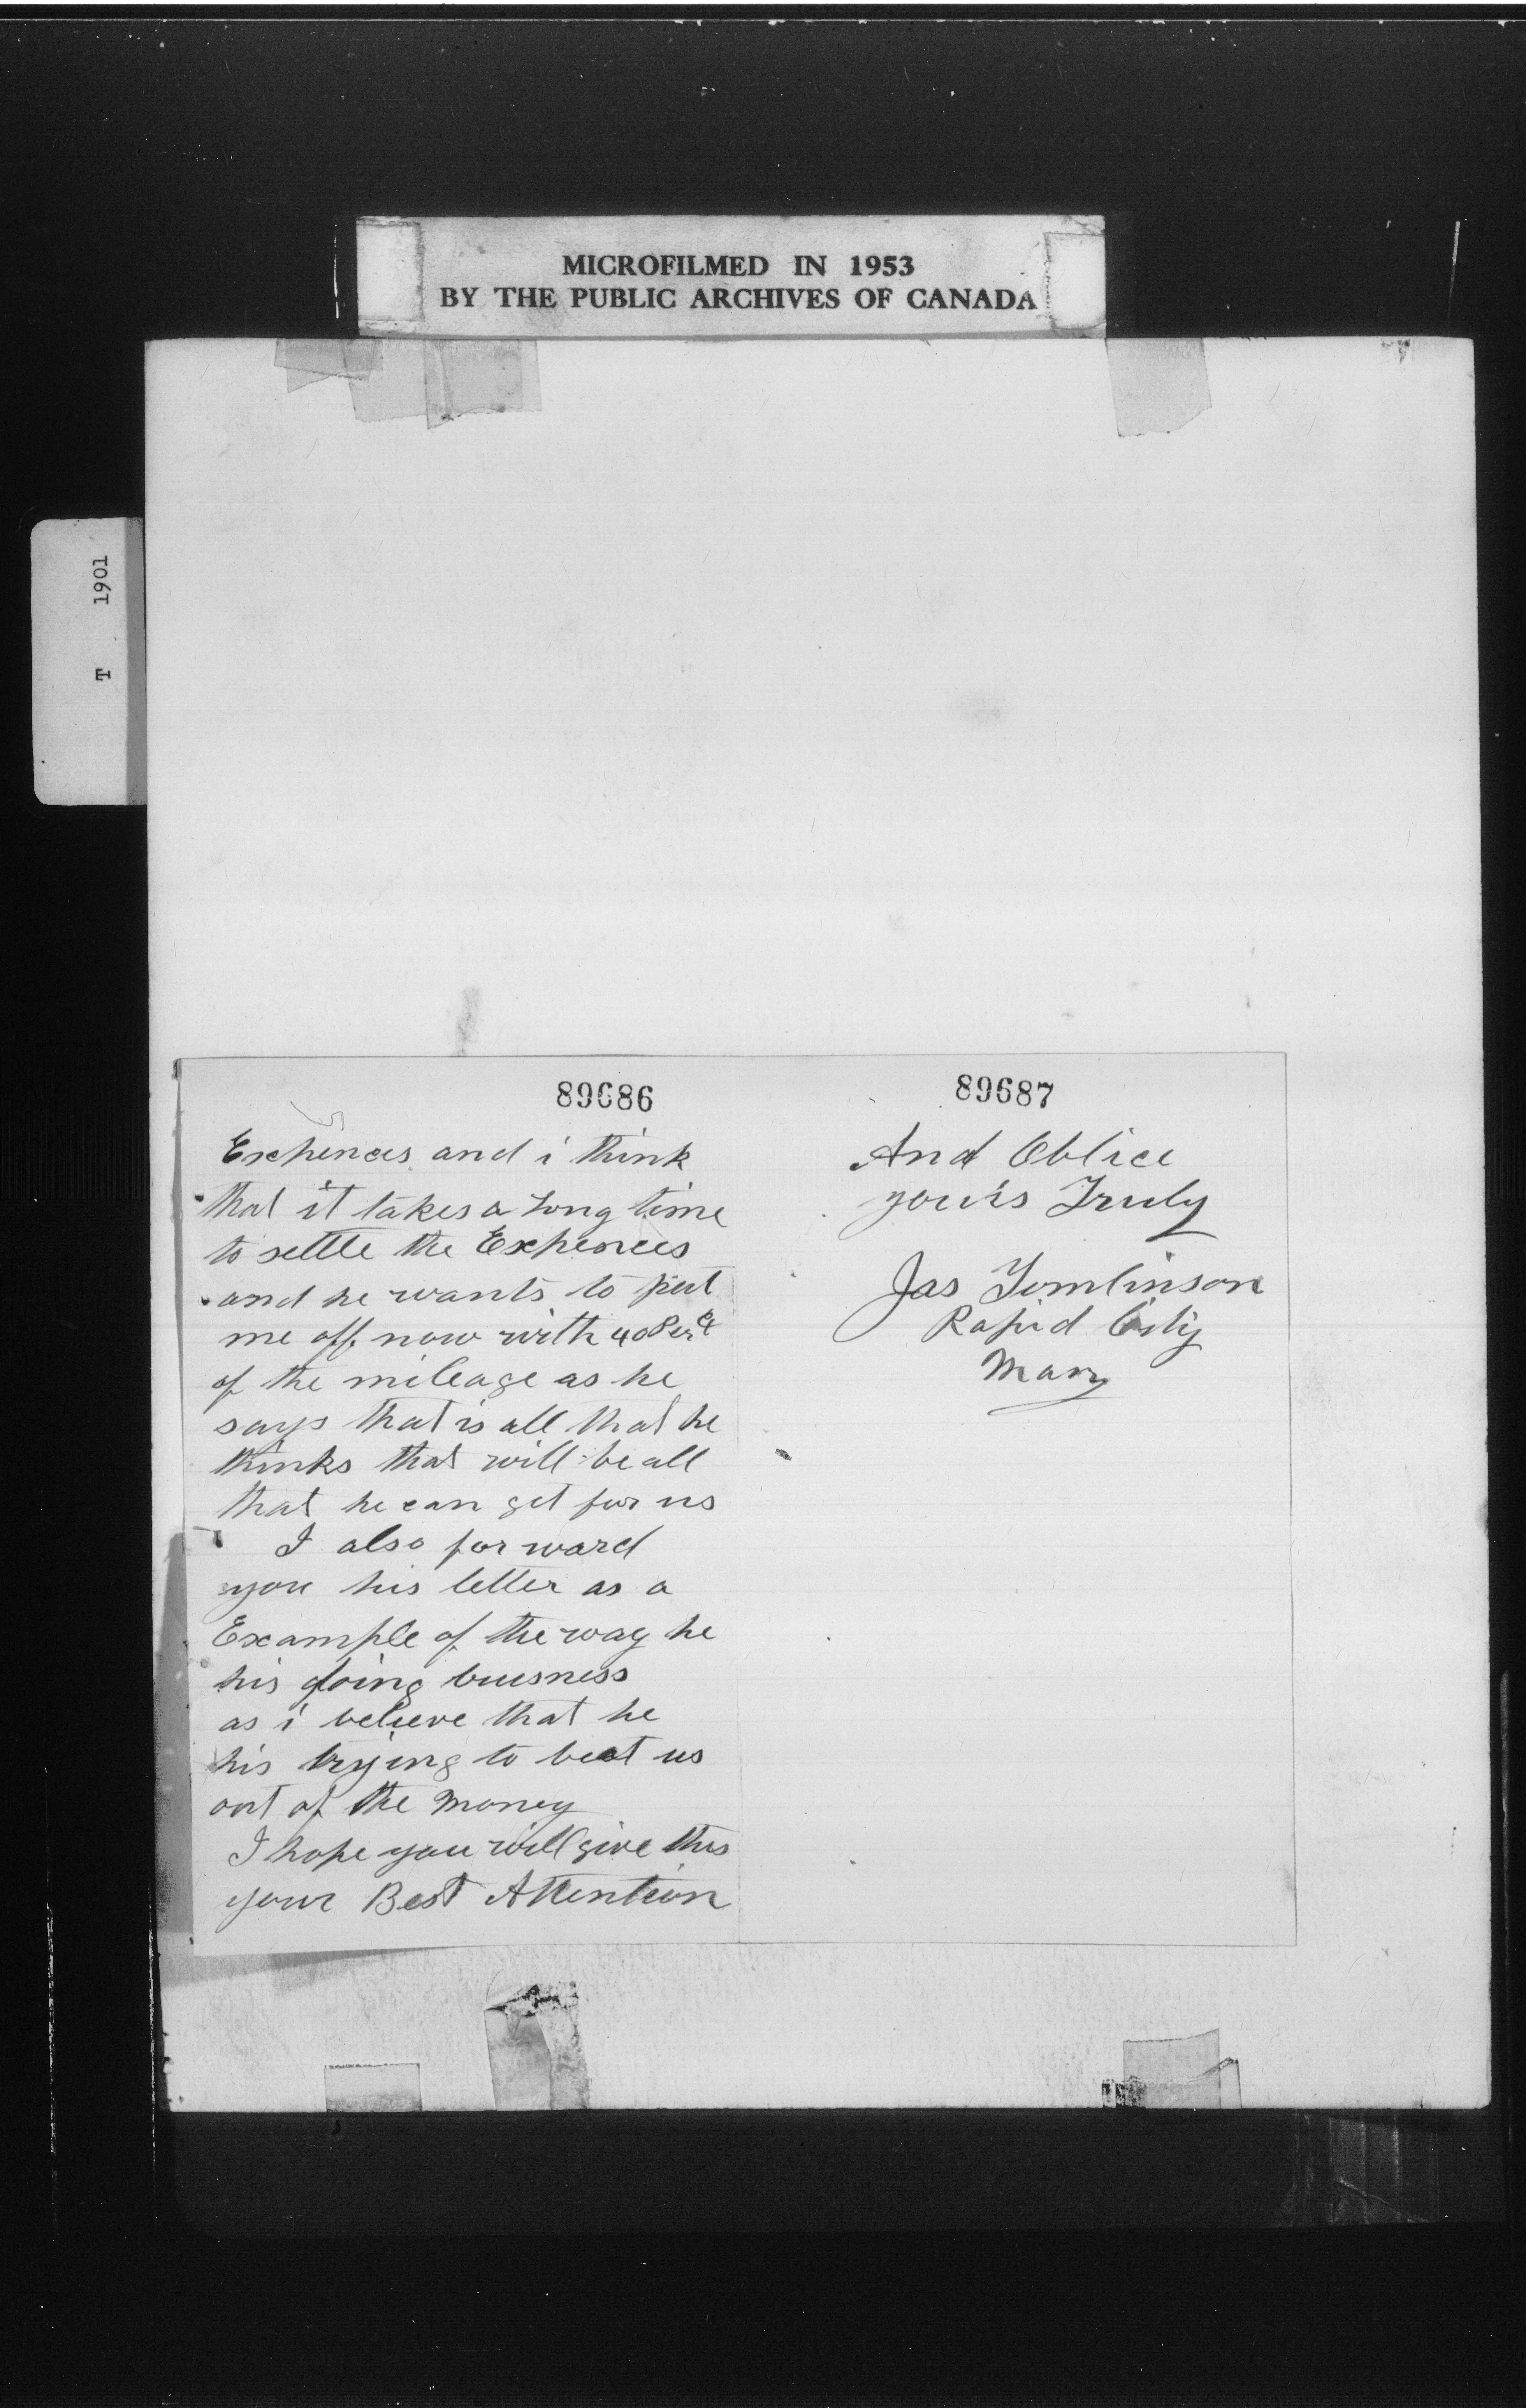 MICROFILMED IN 1953
BY THE PUBLIC ARCHIVES OF CANADA
T 1901
89686
Expences and i think
that it takes a Long time
to settle the Expences
and he wants to put
me off now with 40 Per ct
of the mileage as he
says that is all that he
thinks that will be all
that he can get for us
I also for ward
you his letter as a
Example of the way he
his doing buisness
as i believe that he
his trying to beat us
out of the Money
I hope you will give this
your Best Attention
89687
And Oblice
yours Truly
Jas Tomlinson
Rapid City
Man